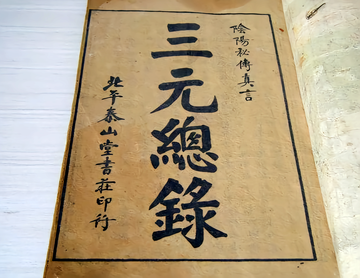 陰陽秘傳真言
三元總錄
北平泰山堂書莊印行